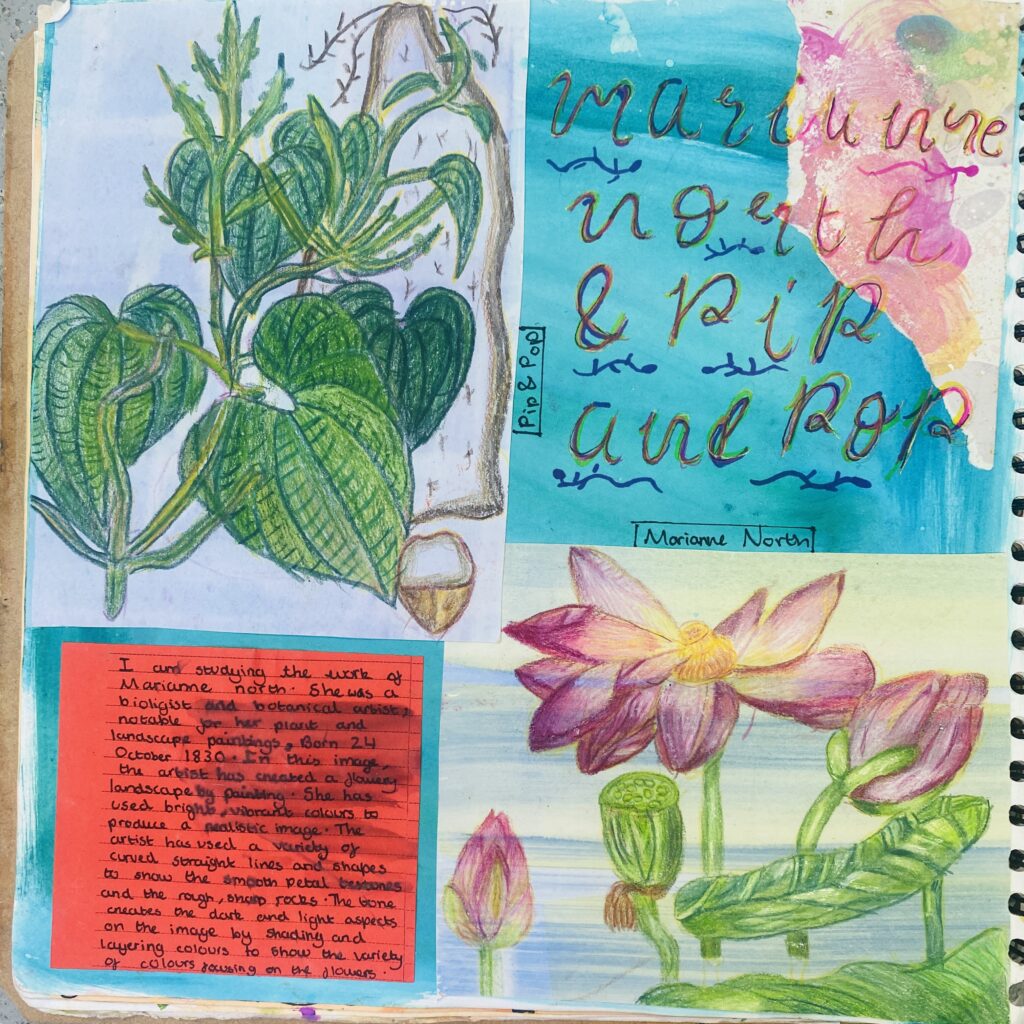 marianne
north
& pip
and pop
Pip & Pop
Marianne North
I am studying the work of
Marianne north. She was a
bioligist and botanical artist,
notable for her plant and
landscape paintings, Born 24
October 1830. In this image,
the artist has created a flowery
landscape by painting. She has
used bright, vibrant colours to
produce a realistic image. The
artist has used a variety of
curved straight lines and shapes
to show the smooth petal textures
and the rough, sharp rocks. The tone
creates the dark and light aspects
on the image by shading and
layering colours to show the variety
of colours focusing on the flowers.